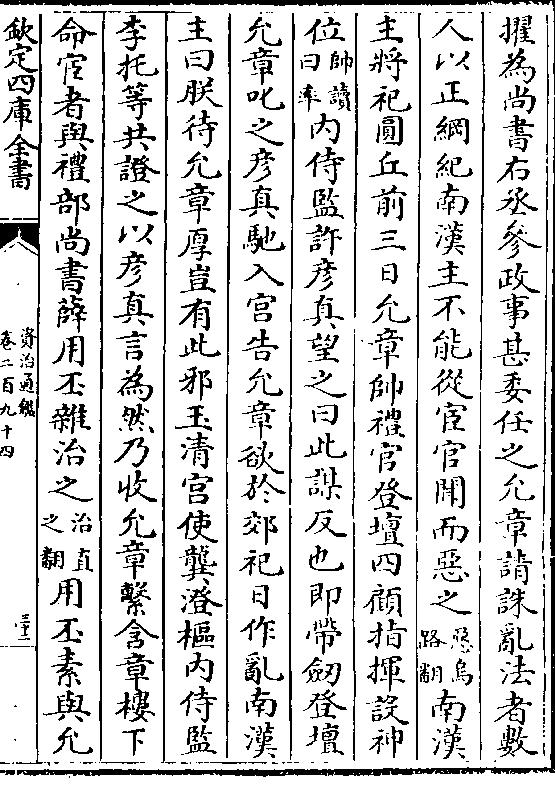 擢為尚書右丞參政事甚委任之允章請誅亂法者數
人以正綱紀南漢主不能從宦官聞而惡之惡烏路翻南漢
主將祀圓丘前三日允章帥禮官登壇四顧指揮設神
位帥讀曰率內侍監許彥真望之曰此謀反也即帶劒登壇
允章叱之彥真馳入宮告允章欲於郊祀日作亂南漢
主曰朕待允章厚豈有此邪玉清宮使龔澄樞內侍監
李托等共證之以彥真言為然乃收允章繫含章樓下
命宦者與禮部尚書薛用丕雜治之治直之翻用丕素與允
欽定四庫全書
資治通鑑
卷二百九十四
三十二